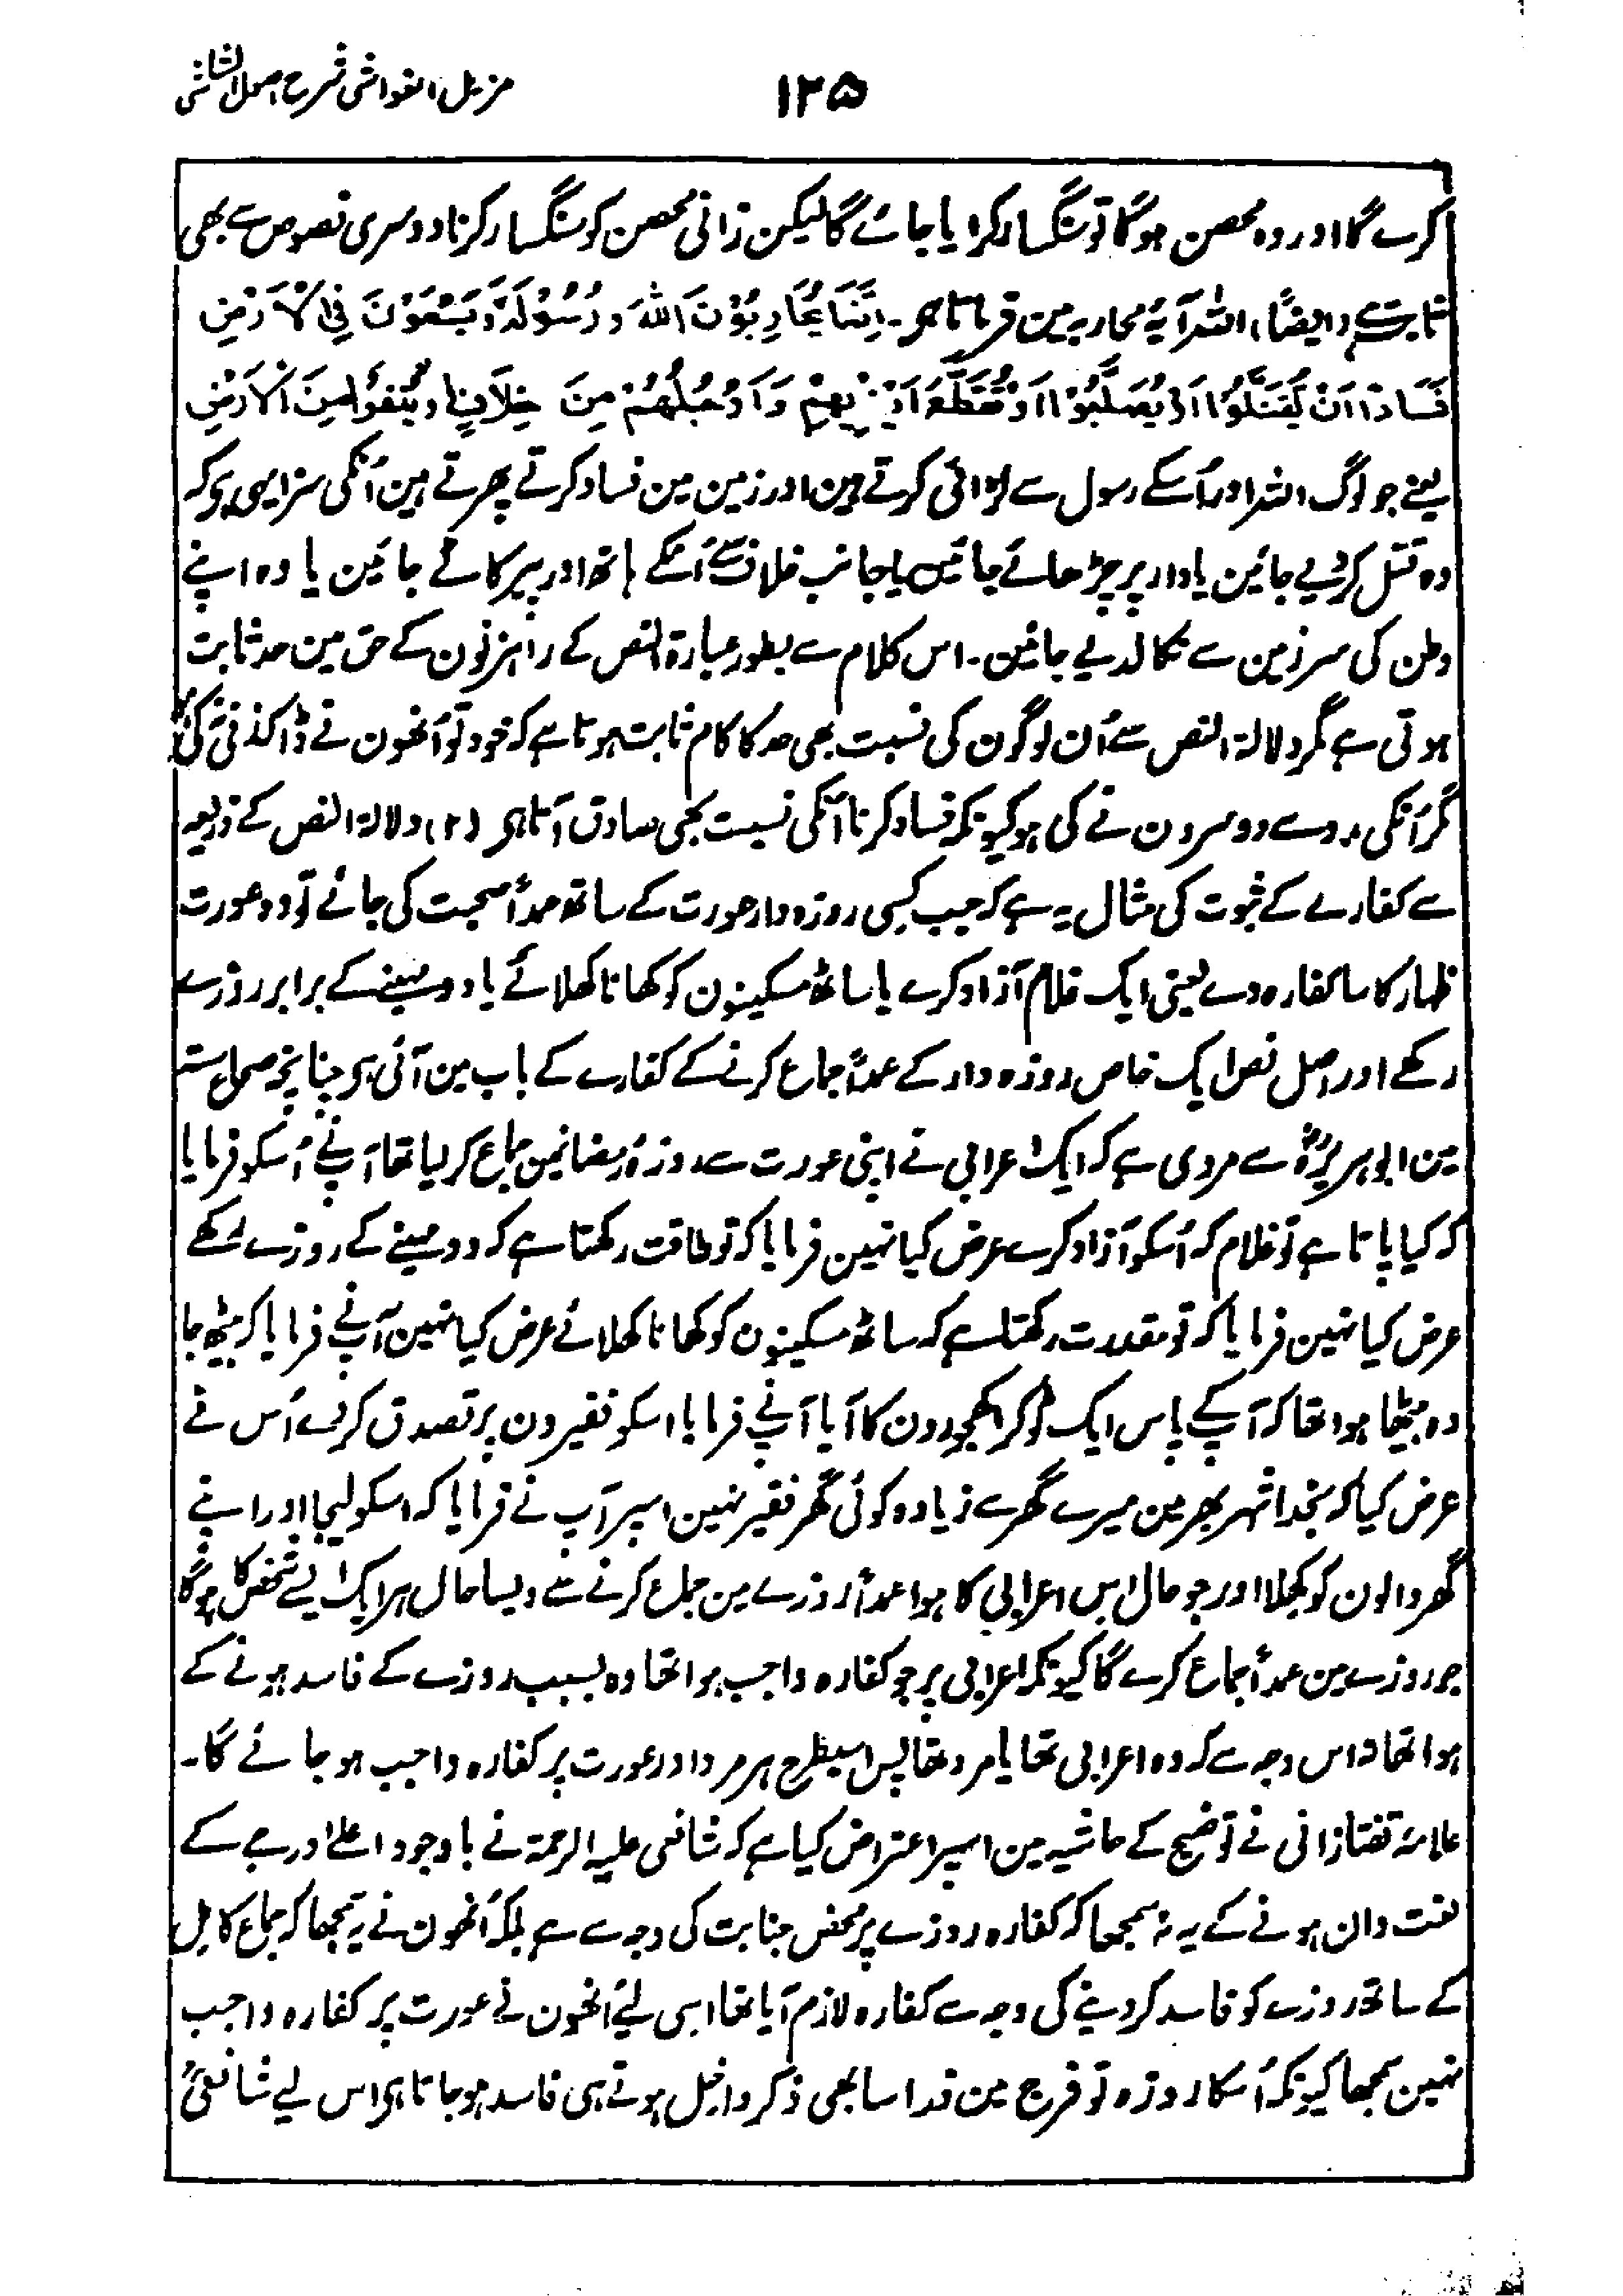 مزیل الغواشی شرح اصول الشاشی
۱۲۵
کرے گا اور وہ محصن ہوگا تو سنگسار کرایا جائے گا لیکن زانی محصن کو سنگسار کرنا دوسری نصوص سے بھی
ثابت ہے (ایضًا) اللہ آیۂ محاربہ مین فرماتا ہی۔ اِنَّمَا یُحَارِبُوْنَ اللهَ وَرَسُوْلَہٗ وَیَسْعَوْنَ فِی الْاَرْضِ
فَسَادًا اَنْ یُّقَتَّلُوْا اَوْ یُصَلَّبُوْا اَوْ تُقَطَّعَ اَیْدِیْھِمْ وَاَرْجُلُھُمْ مِنَ خِلَافٍ اَوْ یُنْفَوْا مِنَ الْاَرْضِ
یعنے جو لوگ اللہ اور اُسکے رسول سے لڑائی کرتے ہین اور زمین مین فساد کرتے پھرتے ہین اُنکی سزا یہی ہی کہ
وہ قتل کر دیے جائین یا دار پر چڑھائے جائین یا جانب خلاف سے اُنکے ہاتھ اور پیر کاٹے جائین یا وہ اپنے
وطن کی سرزمین سے نکالدیے جائین۔ اس کلام سے بطور عبارۃ النص کے راہزنون کے حق مین حد ثابت
ہوتی ہے مگر دلالۃ النص سے اُن لوگون کی نسبت بھی حد کا کام ثابت ہوتا ہے کہ خود تو اُنھون نے ڈاکہ زنی نکی ہو
مگر اُنکی مدد سے دوسرون نے کی ہو کیونکہ فساد کرنا اُنکی نسبت بھی صادق آتا ہی (۲) دلالۃ النص کے ذریعہ
سے کفارے کے ثبوت کی مثال یہ ہے کہ جب کسی روزہ دار عورت کے ساتھ عمداً صحبت کی جائے تو وہ عورت
ظہار کا سا کفارہ دے یعنی ایک غلام آزاد کرے یا ساٹھ مسکینون کو کھانا کھلائے یا دو مہینے کے برابر روزے
رکھے اور اصل نص ایک خاص روزہ دار کے عمداً جماع کرنے کے کفارے کے باب مین آئی ہی چنانچہ صحاح ستہ
مین ابو ہریرہؓ سے مروی ہے کہ ایک اعرابی نے اپنی عورت سے روزۂ رمضانمین جماع کر لیا تھا آپنے اُسکو فرمایا
کہ کیا پاتا ہے تو غلام کہ اُسکو آزاد کرے عرض کیا نہین فرمایا کہ تو طاقت رکھتا ہے کہ دو مہینے کے روزے رکھے
عرض کیا نہین فرمایا کہ تو مقدرت رکھتا ہے کہ ساٹھ مسکینون کو کھانا کھلائے عرض کیا نہین آپنے فرمایا کہ بیٹھ جا
وہ بیٹھا ہوا تھا کہ آپ کے پاس ایک ٹوکرا کھجورون کا آیا آپنے فرمایا اسکو فقیرون پر تصدق کر دے اُس نے
عرض کیا کہ بخدا شہر بھر مین میرے گھر سے زیادہ کوئی گھر فقیر نہین اسپر آپ نے فرمایا کہ اسکو لیجا اور اپنے
گھر والون کو کھلا اور جو حال اس اعرابی کا ہوا عمداً روزے مین جماع کرنے سے ویسا حال ہر ایک ایسے شخص کا ہوگا
جو روزے مین عمداً جماع کرے گا کیونکہ اعرابی پر جو کفارہ واجب ہوا تھا وہ بسبب روزے کے فاسد ہونے کے
ہوا تھا نہ اس وجہ سے کہ وہ اعرابی تھا یا مرد تھا پس اسیطرح ہر مرد اور عورت پر کفارہ واجب ہو جائے گا۔
علامۂ تفتازانی نے توضیح کے حاشیہ مین اسپر اعتراض کیا ہے کہ شافعی علیہ الرحمۃ نے باوجود اعلےٰ درجے کے
لغت دان ہونے کے یہ نہ سمجھا کہ کفارہ روزے پر محض جنایت کی وجہ سے ہے بلکہ اُنھون نے یہ سمجھا کہ جماع کامل
کے ساتھ روزے کو فاسد کر دینے کی وجہ سے کفارہ لازم آیا تھا اسی لیے اُنھون نے عورت پر کفارہ واجب
نہین سمجھا کیونکہ اُسکا روزہ تو فرج مین ذرا سا بھی ذکر داخل ہوتے ہی فاسد ہو جاتا ہی اس لیے شافعیؒ